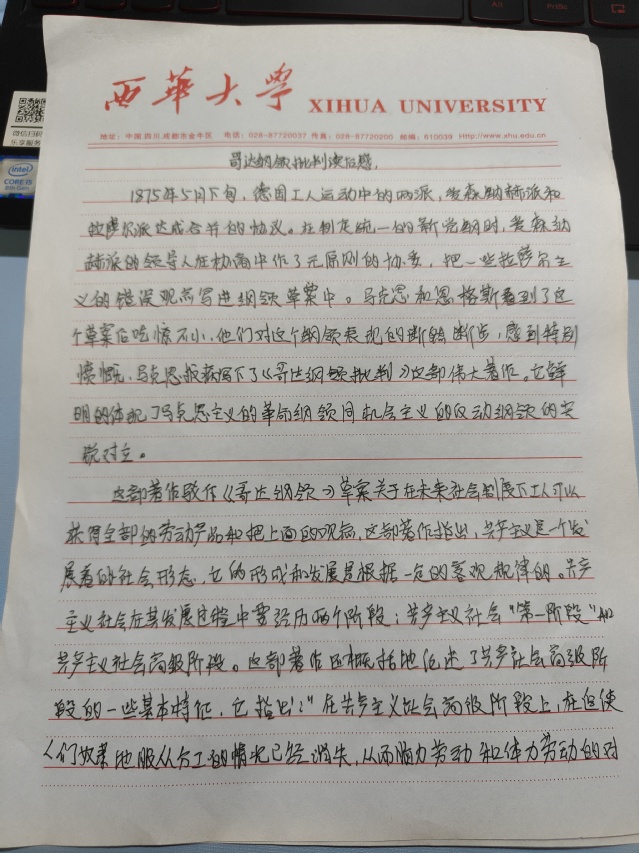 西華大學 XIHUA UNIVERSITY
地址：中国.四川.成都市金牛区 电话：028-87720037 传真：028-87720200 邮编：610039 Http://www.xhu.edu.cn
微信扫码
乐享服务
intel
CORE i5
8th Gen
Alt
PrtSc
哥达纲领批判读后感.
1875年5月下旬，德国工人运动中的两派，爱森纳赫派和
拉萨尔派达成合并的协议。在制定统一的新党纲时，爱森纳
赫派的领导人在协商中作了无原则的妥，把一些拉萨尔主
义的错误观点写进纲领草案中。马克思和恩格斯看到了这
个草案后吃惊不小，他们对这个纲领表现的，感到特别
愤慨，马克思写下了《哥达纲领批判》这部伟大著作。它鲜
明的体现了马克思主义的革命纲领同机会主义的反动纲领的尖
锐对立。
这部著作《哥达纲领》草案关于在未来社会制度下工人可以
获得全部的劳动产品和把上面的观点，这部著作指出，共产主义是一个发
展着的社会形态，它的形成和发展是根据一定的客观规律的。共产
主义社会在其发展过程中要经历两个阶段：共产主义社会“第一阶段”和
共产主义社会高级阶段。这部著作还概括地阐述了共产社会高级阶
段的一些基本特征，它指出：“在共产主义社会高级阶段上，在迫使
人们奴隶地服从分工的情况已经消失，从而脑力劳动和体力劳动的对